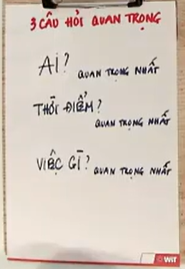 3 CÂU HỎI QUAN TRỌNG
AI?
QUAN TRỌNG NHẤT
THỜI ĐIỂM?
QUAN TRỌNG NHẤT
VIỆC GÌ?
QUAN TRỌNG NHẤT
WIT